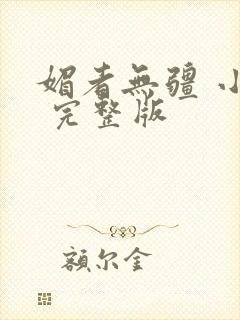 媚者無疆 小
完整版
額尔金